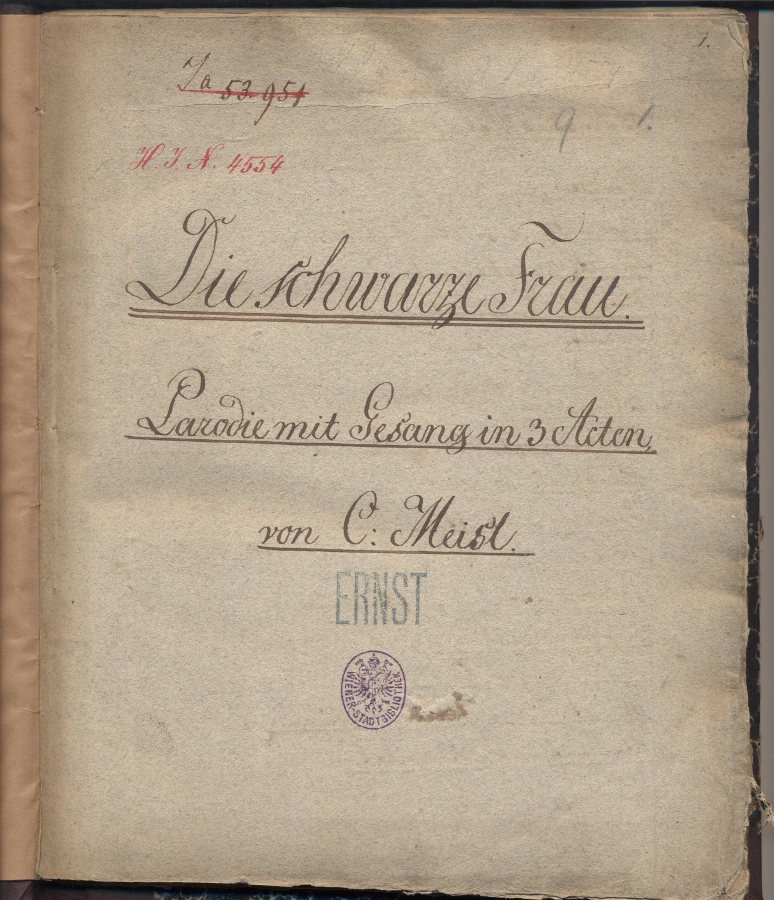 1.
Ja 53.951
9 1.
H. I. N. 4554
Die schwarze Frau.
Parodie mit Gesang in 3 Acten,
von C: Meisl.
ERNST
WIENER-STADTBIBLIOTHEK